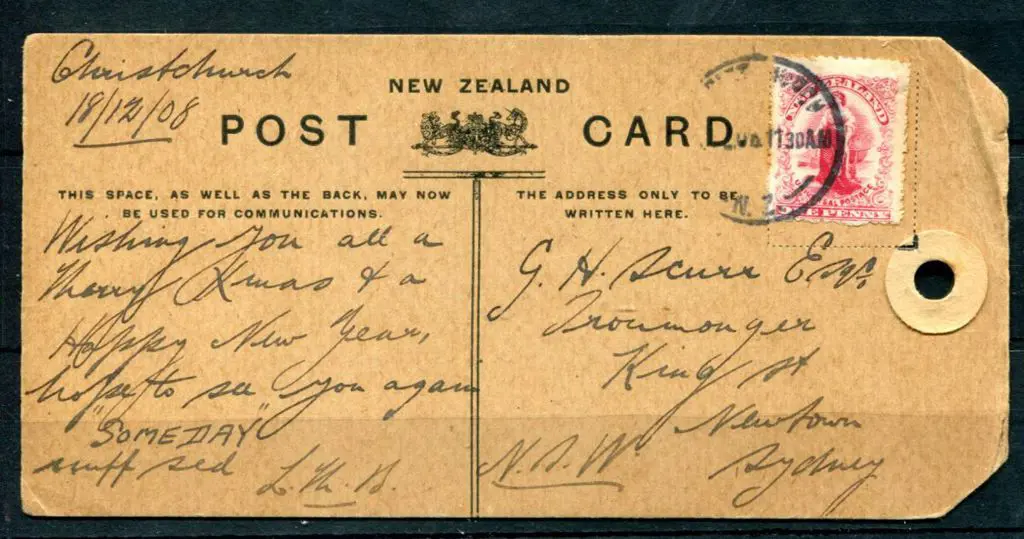 Christchurch
18/12/08
NEW ZEALAND
POST CARD
THIS SPACE, AS WELL AS THE BACK, MAY NOW
BE USED FOR COMMUNICATIONS.
Wishing you all a
Merry Xmas & a
Happy New Year,
hope to see you again
"SOMEDAY"
nuff sed
THE ADDRESS ONLY TO BE
WRITTEN HERE.
G. H. Scurr Esqr.
Ironmonger
King st
Newtown
Sydney
N.S.W.
NEW ZEALAND
UNIVERSAL POSTAGE
ONE PENNY
11 30AM
N.Z